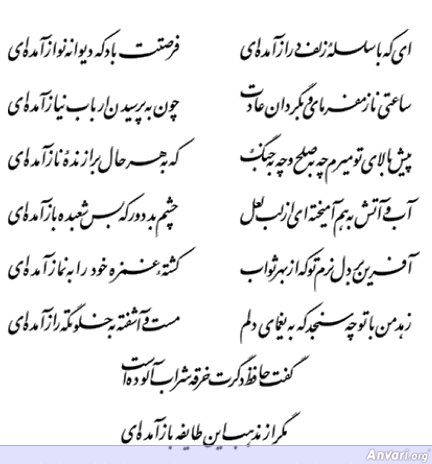 ای که با سلسلهٔ زلف دراز آمده‌ای فرصتت باد که دیوانه نواز آمده‌ای
ساعتی ناز مفرمای و بگردان عادت چون به پرسیدن ارباب نیاز آمده‌ای
پیش بالای تو میرم چه به صلح و چه به جنگ که به هر حال برازندهٔ ناز آمده‌ای
آب و آتش به هم آمیخته‌ای از لب لعل چشم بد دور که بس شعبده باز آمده‌ای
آفرین بر دل نرم تو که از بهر ثواب کشتهٔ غمزه خود را به نماز آمده‌ای
زهد من با تو چه سنجد که به یغمای دلم مست و آشفته به خلوتگه راز آمده‌ای
گفت حافظ دگرت خرقه شراب آلوده است
مگر از مذهب این طایفه باز آمده‌ای
Anvari.org